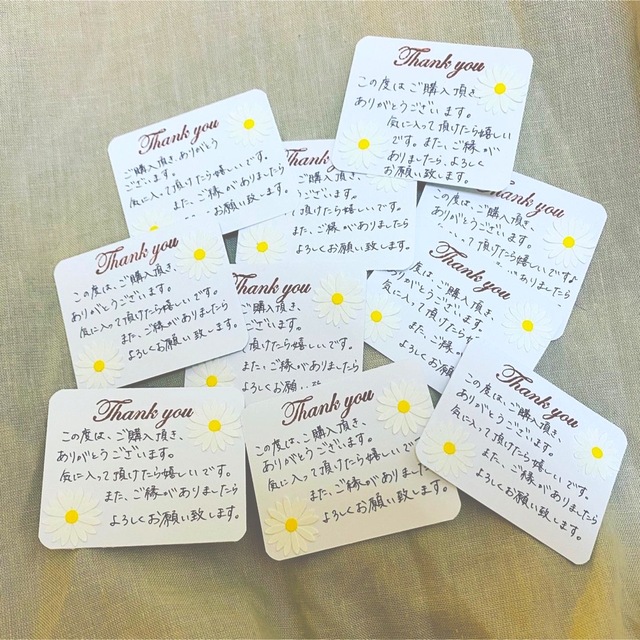 Thank you
この度はご購入頂き
ありがとうございます。
気に入って頂けたら嬉しい
です。また、ご縁が
ありましたら、よろしく
お願い致します。
Thank you
ご購入頂き、ありがとう
ございます。
気に入って頂けたら嬉しいです。
また、ご縁がありましたら
お願い致します。
Thank
ご購入頂き、
うございます。
頂けたら嬉しいです。
ご縁がありましたら
よろしくお願い致します。
Thank you
この度は、ご購入頂き、
ありがとうございます。
って頂けたら嬉しいです
ありましたら
Thank you
この度は、ご購入頂き、
ありがとうございます。
気に入って頂けたら嬉しいです。
また、ご縁がありましたら
よろしくお願い致します。
Thank you
ご購入頂き、
ございます。
て頂けたら嬉しいです。
ご縁がありましたら
よろしくお願
Thank you
度は、ご購入頂き、
ありがとうございます。
気に入って頂けたら
また、ご
Thank you
この度は、ご購入頂き、
ありがとうございます。
気に入って頂けたら嬉しいです。
また、ご縁がありましたら
よろしくお願い致します。
Thank you
この度は、ご購入頂き、
ありがとうございます。
気に入って頂けたら嬉しいです。
また、ご縁がありましたら
よろしくお願い致します。
Thank you
この度は、ご購入頂き、
ありがとうございます。
気に入って頂けたら嬉しいです。
また、ご縁がありましたら
よろしくお願い致します。